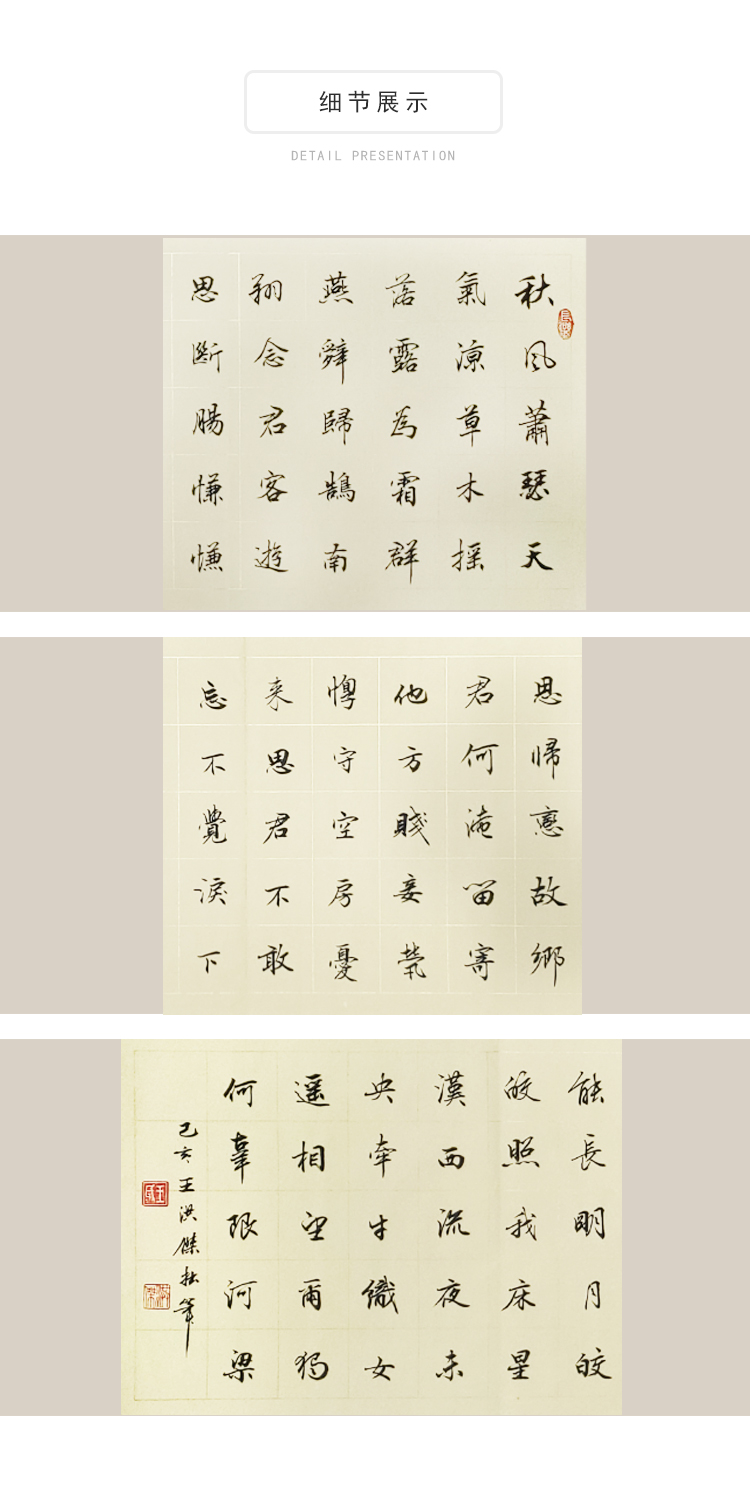 细节展示
DETAIL PRESENTATION
秋風蕭瑟天
氣涼草木搖
落露為霜群
燕辭歸鵠南
翔念君客遊
思斷腸慊慊
思歸戀故鄉
君何淹留寄
他方賤妾煢
惸守空房憂
来思君不敢
忘不覺淚下
能長明月皎
皎照我床星
漢西流夜未
央牽牛織女
遥相望爾獨
何辜限河梁
己亥王洪傑拙筆